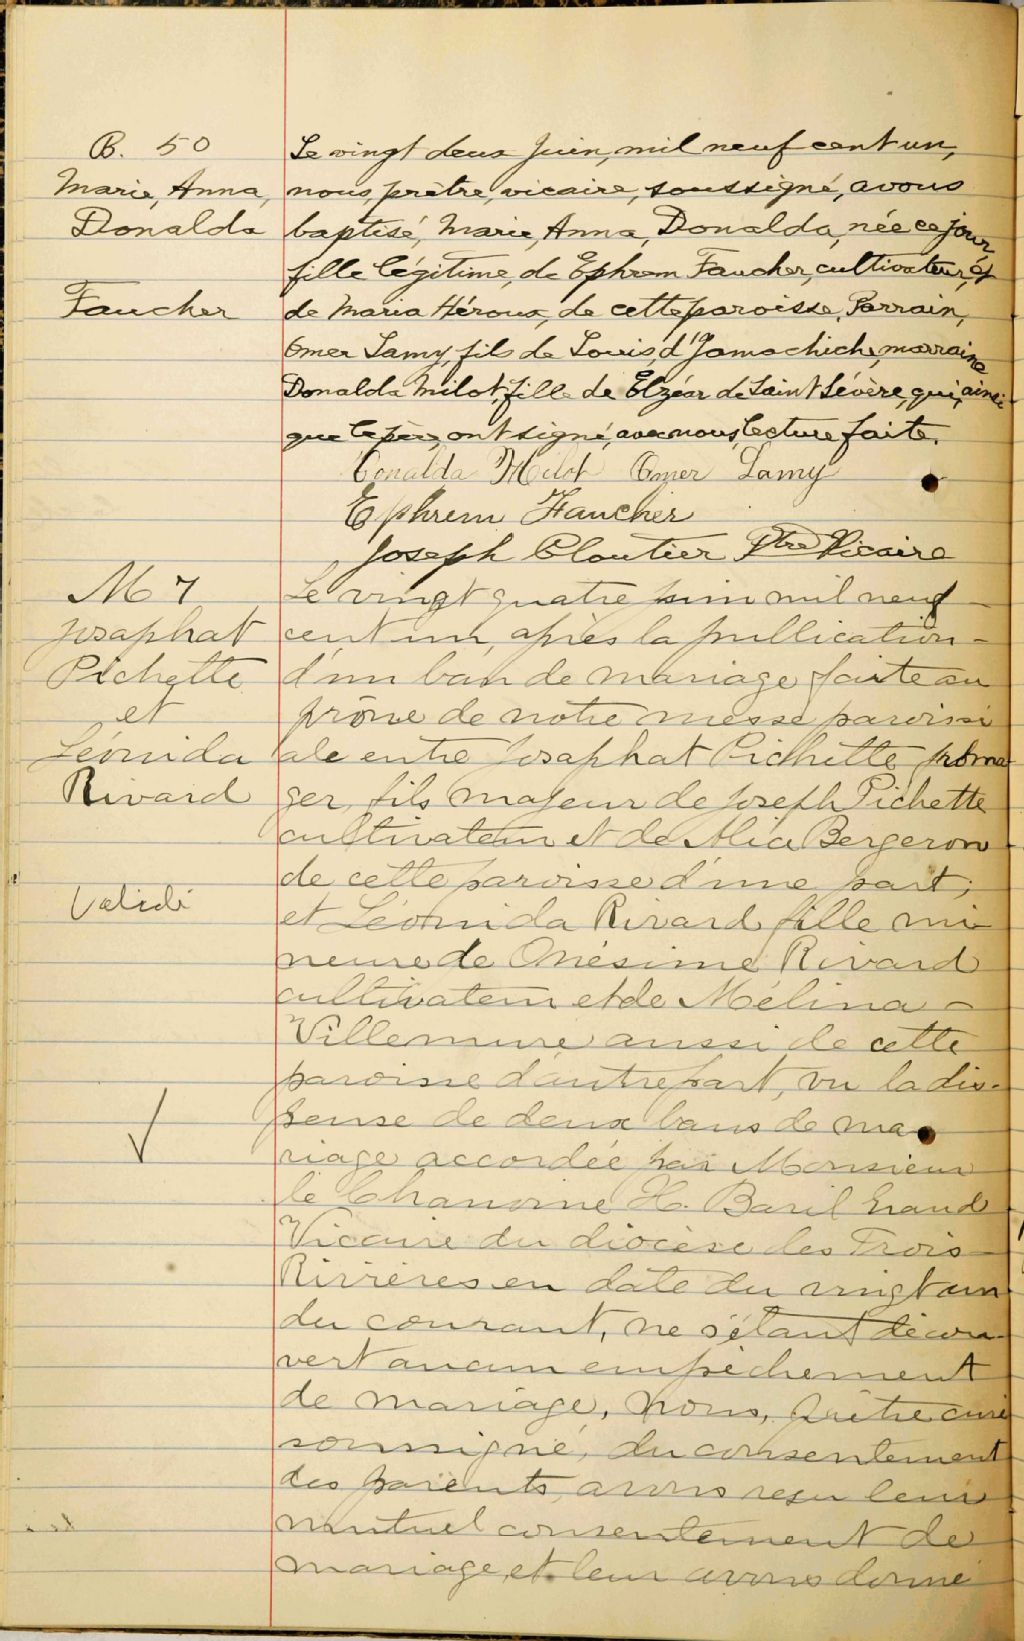 B. 50
Marie, Anna,
Donalda
Faucher
Le vingt deux juin, mil neuf cent un,
nous, prêtre, vicaire, soussigné, avons
baptisé, Marie, Anna, Donalda, née ce jour
fille légitime, de Ephrem Faucher, cultivateur, et
de Maria Héroux, de cette paroisse. Parrain,
Omer Lamy, fils de Louis, d'Yamachiche, marraine
Donalda Milot, fille de Elzéar de Saint Sévère, qui, ainsi
que le père, ont signé, avec nous, lecture faite.
Donalda Milot Omer Lamy
Ephrem Faucher
Joseph Cloutier Ptre Vicaire
M 7
Josaphat
Pichette
et
Léonida
Rivard
Validé
Le vingt quatre juin mil neuf
cent un, après la publication
d'un ban de mariage faite au
prône de notre messe paroissi
ale entre Josaphat Pichette froma
ger, fils majeur de Joseph Pichette
cultivateur et de Alice Bergeron
de cette paroisse d'une part;
et Léonida Rivard fille mi
neure de Onésime Rivard
cultivateur et de Mélina
Villemure aussi de cette
paroisse d'autre part, vu la dis-
pense de deux bans de ma
riage accordée par Monsieur
le Chanoine H. Baril Grand
Vicaire du diocèse des Trois
Rivières en date du vingt un
du courant, ne s'étant décou-
vert aucun empêchement
de mariage, nous, prêtre curé
soussigné, du consentement
des parents, avons reçu leur
mutuel consentement de
mariage et leur avons donné